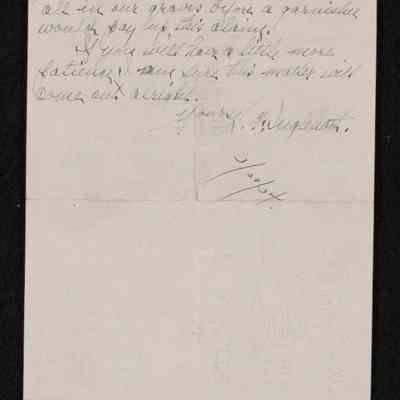 all in our graves before a garnishee
would pay up this claim.
If you will have a little more
patience I am sure this matter will
come out alright.
Yours